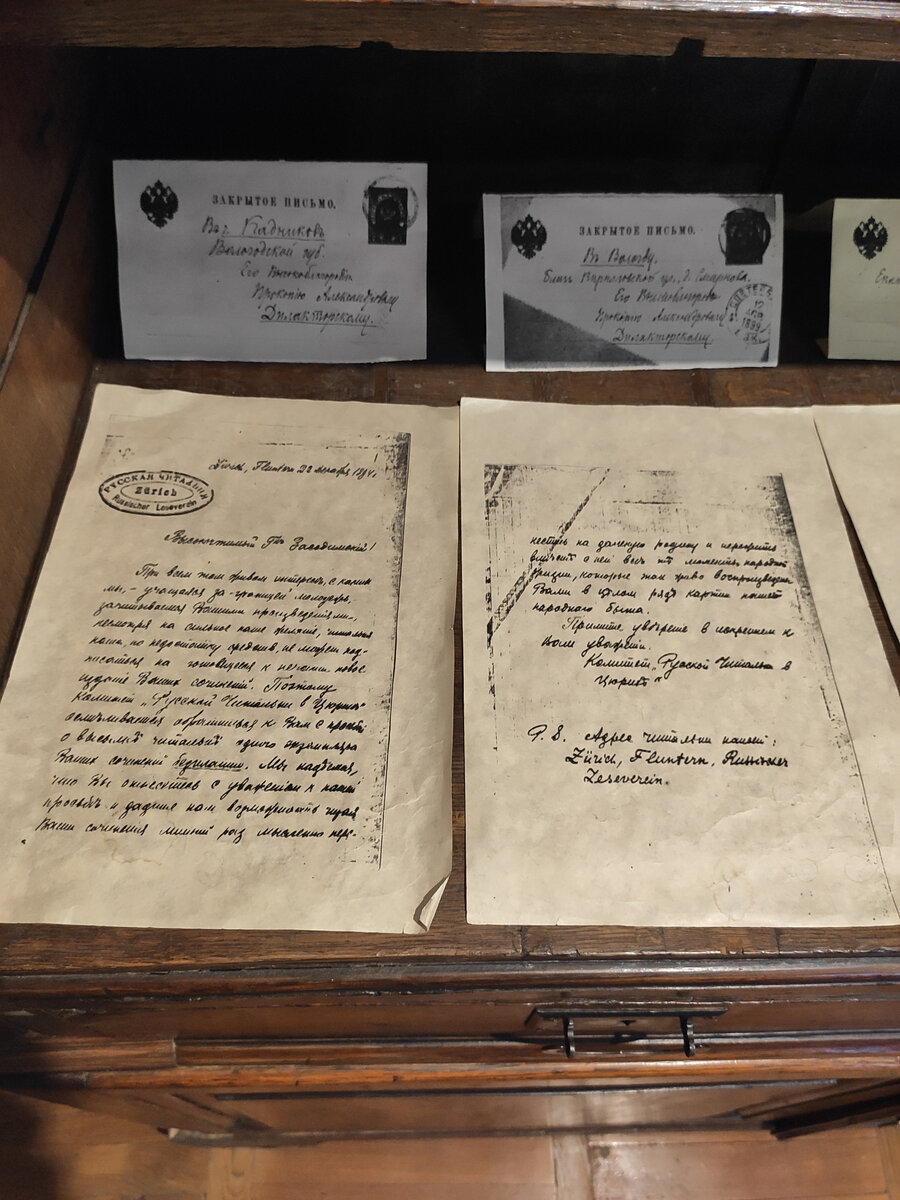 ЗАКРЫТОЕ ПИСЬМО.
Въ г. Кадниковъ
Вологодской губ.
Его Высокоблагородію
Прокопію Александровичу
Дилакторскому.
ЗАКРЫТОЕ ПИСЬМО.
Въ Вологду.
д. Смирнова.
Его Высокоблагородію
Прокопію Александровичу
Дилакторскому.
1899
РУССКАЯ ЧИТАЛЬНЯ
Zürich
Russischer Leseverein
Zürich, Fluntern 20 декабря 1894 г.
Высокочтимый Гнъ Засодимскій!
При всемъ томъ живомъ интересѣ, съ какимъ
мы, – учащаяся за-границей молодежь,
зачитываемся Вашими произведеніями,
несмотря на сильное наше желаніе, читальня
наша, по недостатку средствъ, не можетъ под-
писаться на готовящееся къ печати новое
изданіе Вашихъ сочиненій. Поэтому
Комитетъ „Русской Читальни въ Цюрихѣ"
осмѣливается обратиться къ Вамъ съ просьбой
о высылкѣ читальнѣ одного экземпляра
Вашихъ сочиненій безплатно. Мы надѣемся,
что Вы отнесетесь съ уваженіемъ къ нашей
просьбѣ и дадите намъ возможность читая
Ваши сочиненія лишній разъ мысленно пере-
нестись на далекую родину и пережить
вмѣстѣ съ ней всѣ тѣ моменты народной
жизни, которые такъ живо воспроизведены
Вами въ цѣломъ рядѣ картинъ нашего
народнаго быта.
Примите увѣреніе въ искреннемъ къ
Вамъ уваженіи.
Комитетъ „Русской Читальни въ
Цюрихѣ"
P. S. Адресъ читальни нашей:
Zürich, Fluntern, Russischer
Leseverein.